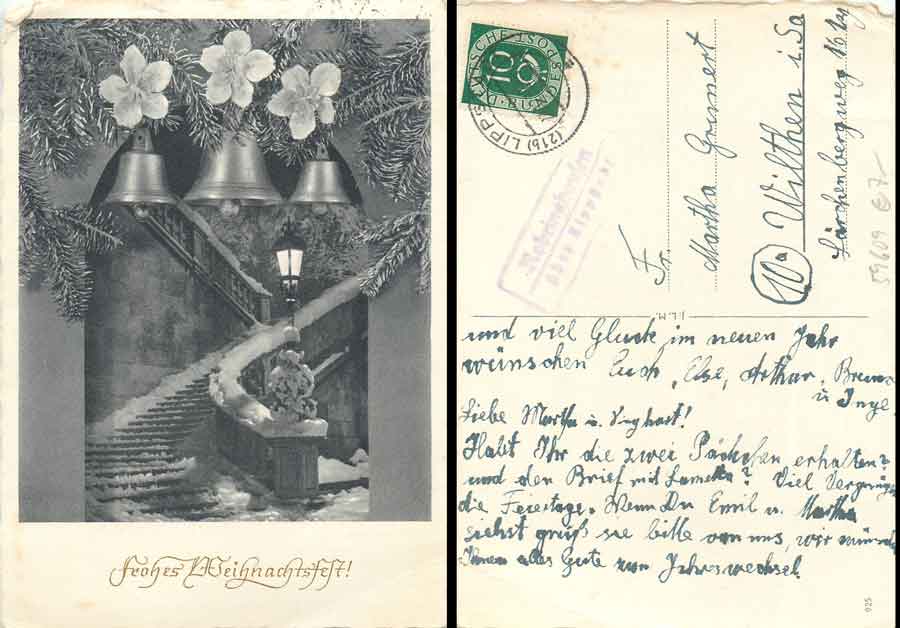 Frohes Weihnachtsfest!
DEUTSCHE BUNDESPOST
10
(21b) LIPPS
über Lippstadt
Fr.
Martha Grunert
10a Wilthen i. Sa
Lärchenbergweg 16
59609 € 7-
J.L.M.
und viel Glück im neuen Jahr
wünschen Euch, Else, Arthur, Bruno
u Inge
Liebe Martha u.
Habt Ihr die zwei Päckchen erhalten?
und den Brief mit Lametta? Viel Vergnügen
die Feiertage. Wenn Du Emil u. Martha
siehst grüß sie bitte von uns, wir wünschen
Ihnen alles Gute zum Jahreswechsel.
925